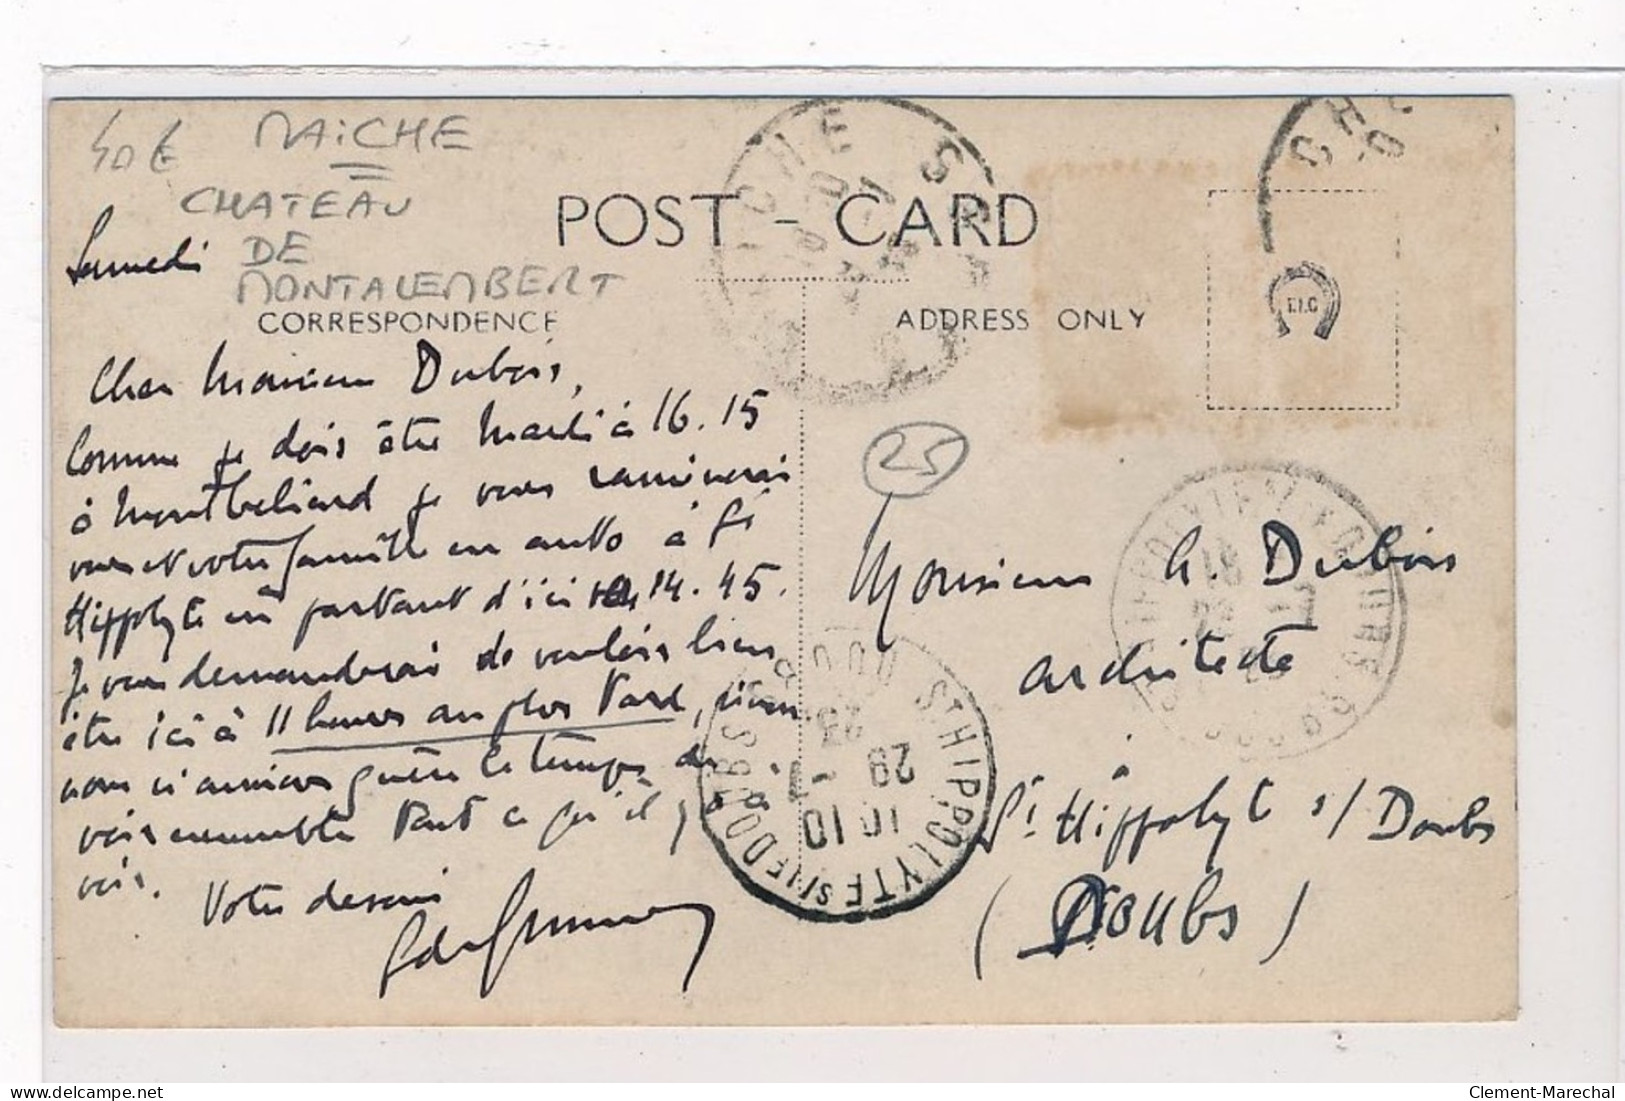 40 €
MAÎCHE
CHATEAU
DE
MONTALEMBERT
POST - CARD
CORRESPONDENCE
ADDRESS ONLY
T.I.C
25
Samedi
Cher Monsieur Dubois,
Comme je dois être Mardi à 16.15
à Montbéliard je vous ramènerai
vous et votre famille en auto à St
Hippolyte en partant d'ici à 14.45.
Je vous demanderai de vouloir bien
être ici à 11 heures au plus tard, sinon
nous n'aurions guère le temps de
voir ensemble tout ce qu'il y a à
voir.
Votre dévoué
Monsieur G. Dubois
architecte
à
St Hippolyte s/ Doubs
(Doubs)
ST HIPPOLYTE S/ LE DOUBS
DOUBS
10 10
28 -7
23
CHE
delcampe.net
Clement-Marechal